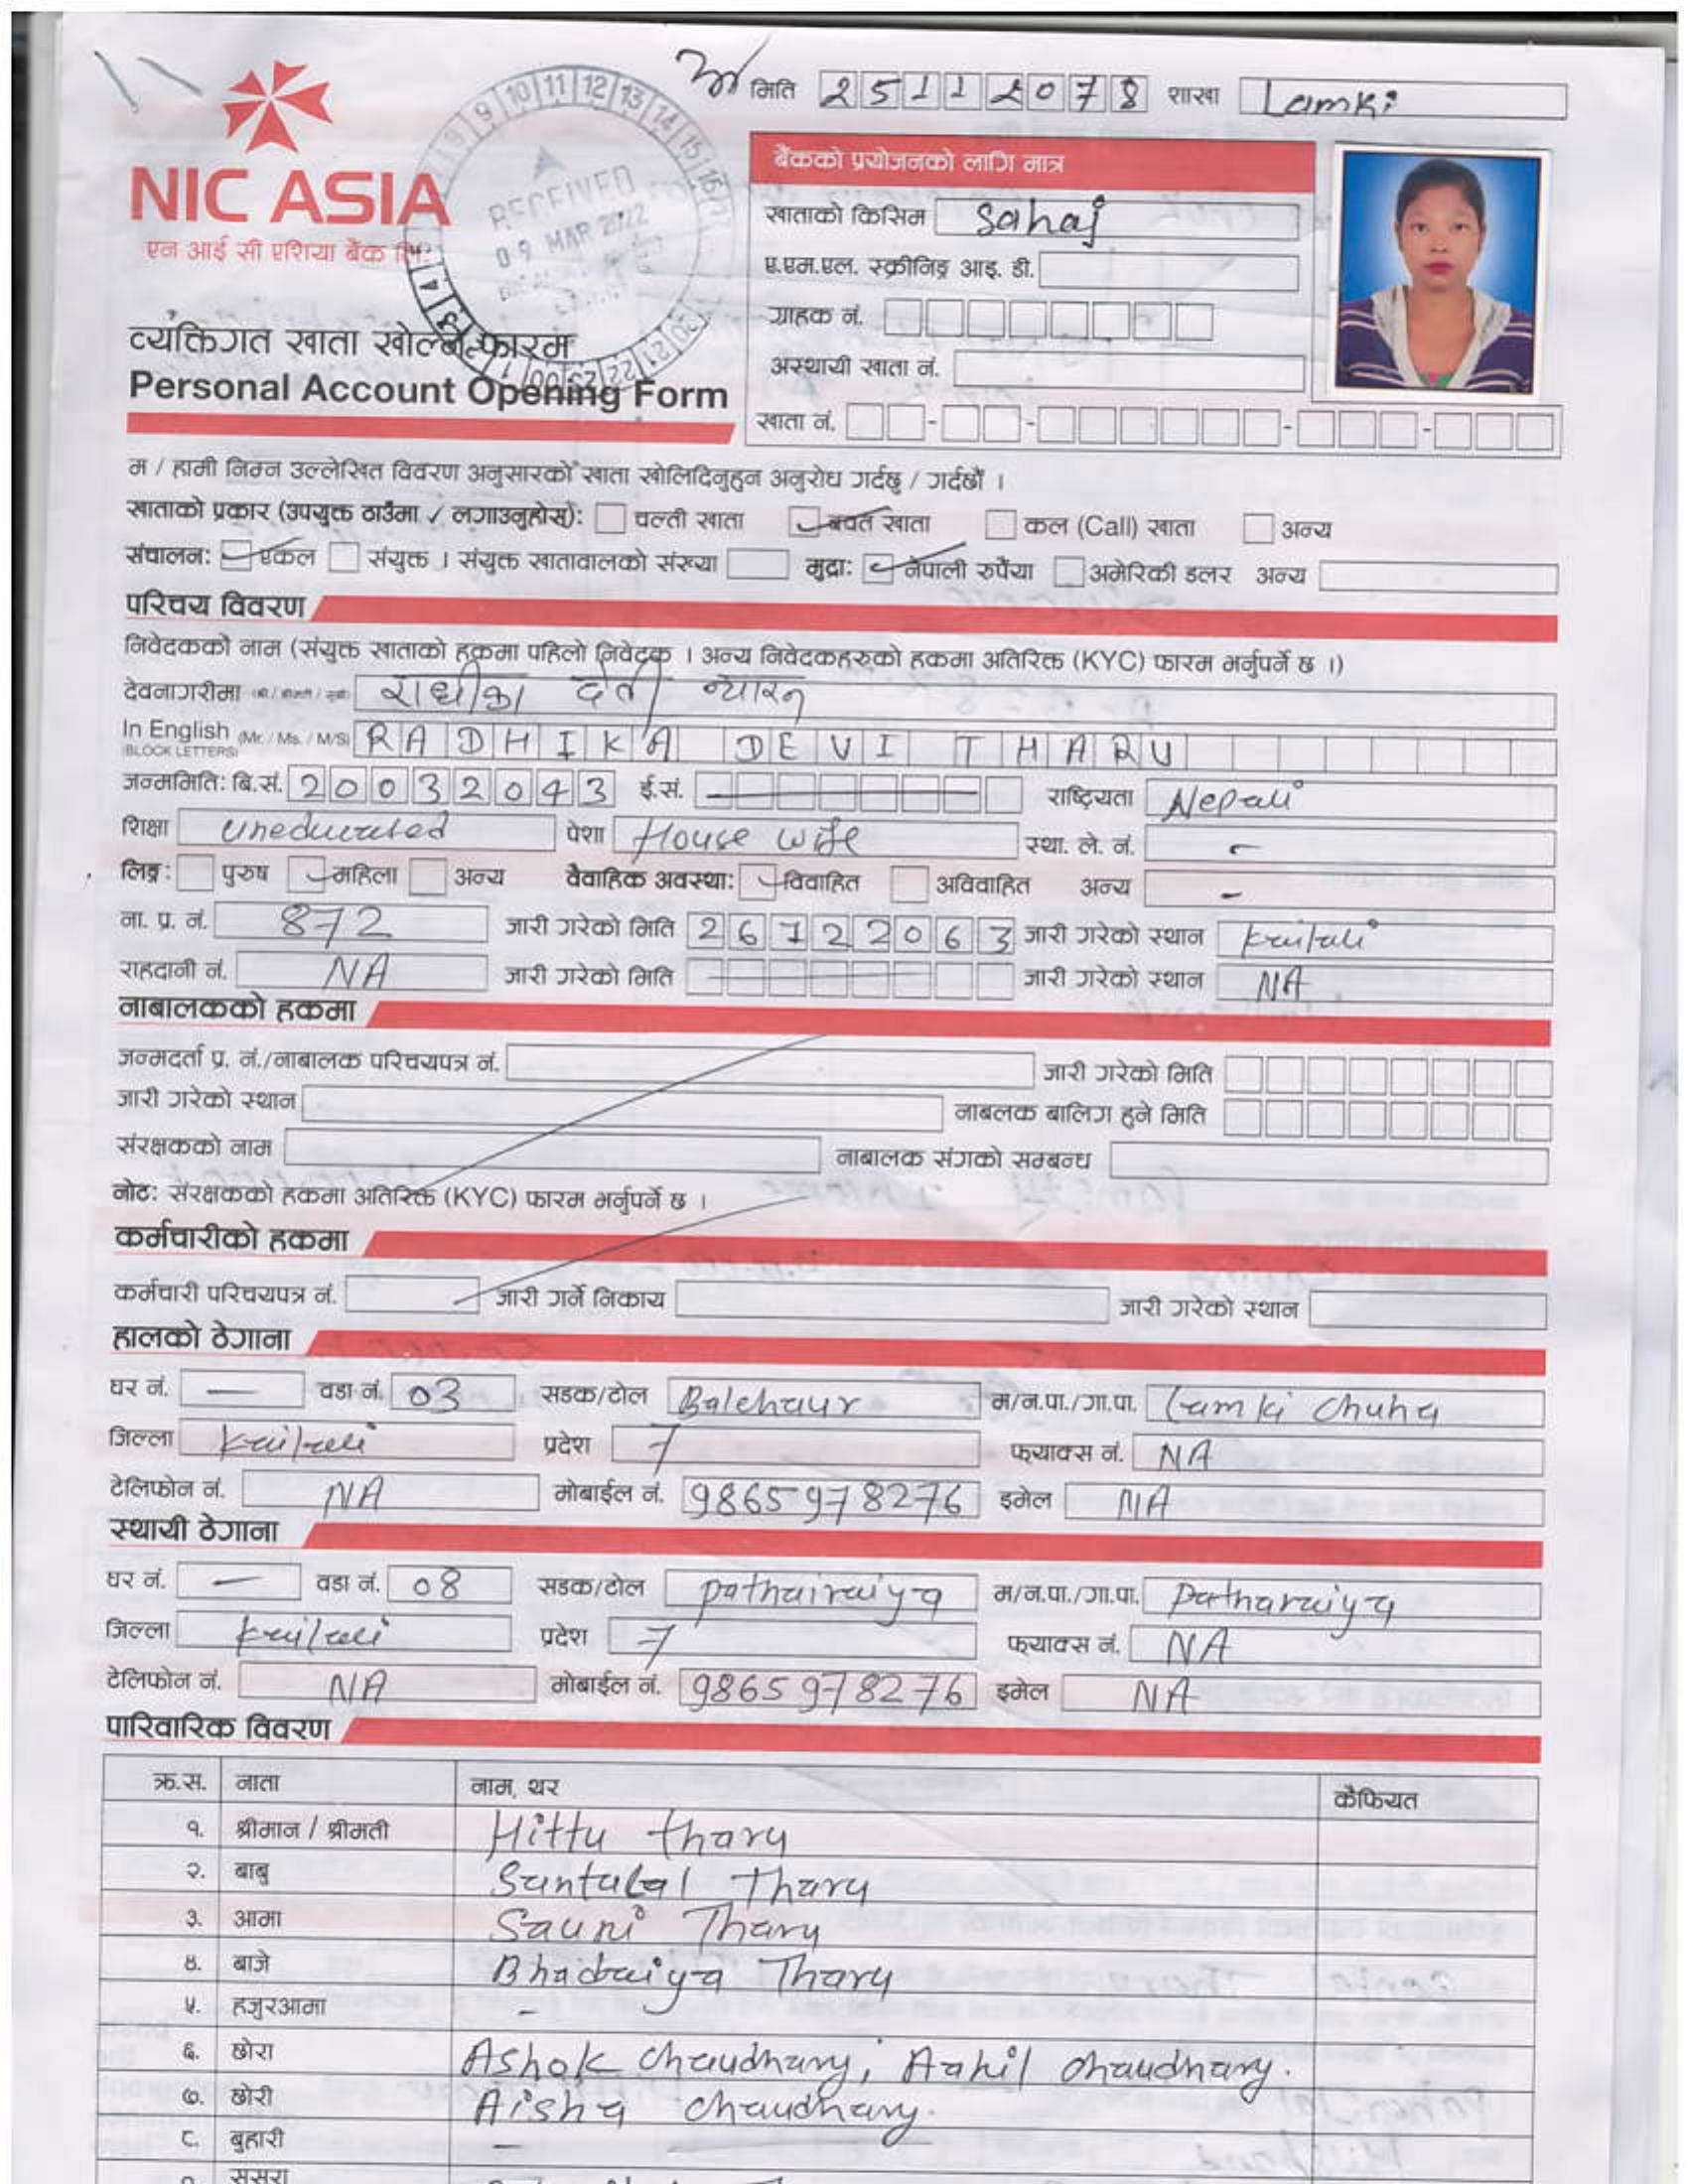 मिति 25112078 शाखा Lamki
NIC ASIA
एन आई सी एशिया बैंक लि.
RECEIVED
09 MAR 2022
बैंकको प्रयोजनको लागि मात्र
खाताको किसिम Sahaj
ए.एम.एल. स्क्रीनिङ्ग आइ. डी.
ग्राहक नं.
अस्थायी खाता नं.
खाता नं.
व्यक्तिगत खाता खोल्ने फारम
Personal Account Opening Form
म / हामी निम्न उल्लेखित विवरण अनुसारको खाता खोलिदिनुहुन अनुरोध गर्दछु / गर्दछौं ।
खाताको प्रकार (उपयुक्त ठाउँमा ✓ लगाउनुहोस्): चल्ती खाता बचत खाता कल (Call) खाता अन्य
संचालन: एकल संयुक्त । संयुक्त खातावालको संख्या मुद्रा: नेपाली रुपैंया अमेरिकी डलर अन्य
परिचय विवरण
निवेदकको नाम (संयुक्त खाताको हकमा पहिलो निवेदक । अन्य निवेदकहरुको हकमा अतिरिक्त (KYC) फारम भर्नुपर्ने छ ।)
देवनागरीमा राधीका देवी
In English (Mr. / Ms. / M/S) RADHIKA DEVI THARU
(BLOCK LETTERS)
जन्ममिति: बि.सं. 20032043 ई.सं. राष्ट्रियता Nepali
शिक्षा uneducated पेशा House wife स्था. ले. नं. -
लिङ्ग: पुरुष महिला अन्य वैवाहिक अवस्था: विवाहित अविवाहित अन्य -
ना. प्र. नं. 872 जारी गरेको मिति 26122063 जारी गरेको स्थान Kailali
राहदानी नं. NA जारी गरेको मिति जारी गरेको स्थान NA
नाबालकको हकमा
जन्मदर्ता प्र. नं./नाबालक परिचयपत्र नं. जारी गरेको मिति
जारी गरेको स्थान नाबलक बालिग हुने मिति
संरक्षकको नाम नाबालक संगको सम्बन्ध
नोट: संरक्षकको हकमा अतिरिक्त (KYC) फारम भर्नुपर्ने छ ।
कर्मचारीको हकमा
कर्मचारी परिचयपत्र नं. जारी गर्ने निकाय जारी गरेको स्थान
हालको ठेगाना
घर नं. — वडा नं. 03 सडक/टोल Balchaur म/न.पा./गा.पा. Lamki Chuha
जिल्ला Kailali प्रदेश 7 फ्याक्स नं. NA
टेलिफोन नं. NA मोबाईल नं. 9865978276 इमेल NA
स्थायी ठेगाना
घर नं. — वडा नं. 08 सडक/टोल pathairaiya म/न.पा./गा.पा. Patharaiya
जिल्ला Kailali प्रदेश 7 फ्याक्स नं. NA
टेलिफोन नं. NA मोबाईल नं. 9865978276 इमेल NA
पारिवारिक विवरण
क्र.स. नाता नाम, थर कैफियत
१. श्रीमान / श्रीमती Hittu tharu
२. बाबु Santulal Tharu
३. आमा Sauni Tharu
४. बाजे Tharu
५. हजुरआमा -
६. छोरा Ashok Chaudhary, Aahil Chaudhary.
७. छोरी Aisha Chaudhary.
८. बुहारी —
ससुरा